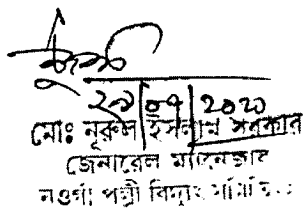 ২৯/০৭/২০২০
মোঃ নূরুল ইসলাম সরকার
জেনারেল ম্যানেজার
নওগাঁ পল্লী বিদ্যুৎ সমিতি